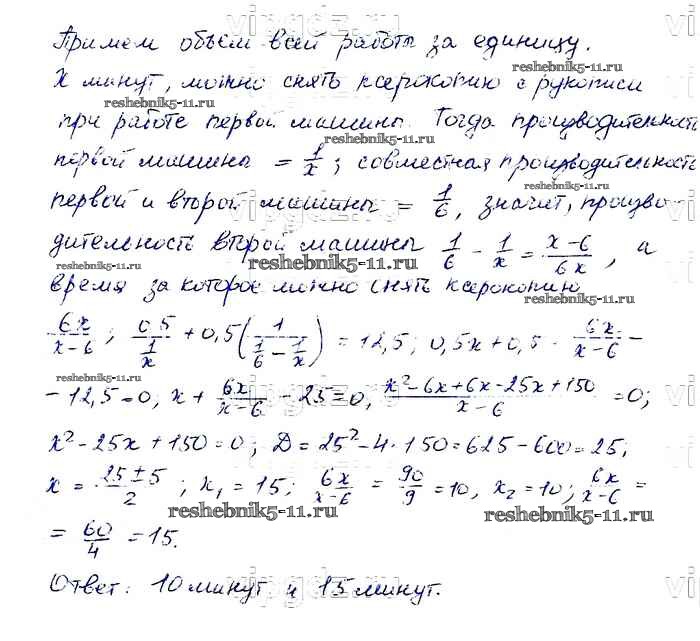 Примем объем всей работы за единицу.
X минут, можно снять ксерокопию с рукописи
reshebnik5-11.ru
reshebnik5-11.ru
при работе первой машины. Тогда производительность
reshebnik5-11.ru
первой машины = 1/x; совместная производительность
первой и второй машины = 1/6, значит, произво-
reshebnik5-11.ru
vipgdz.ru
дительность второй машины 1/6 - 1/x = (x-6)/6x, а
reshebnik5-11.ru
reshebnik5-11.ru
время за которое можно снять ксерокопию
reshebnik5-11.ru
6x/(x-6); 0,5/(1/x) + 0,5(1/(1/6 - 1/x)) = 12,5; 0,5x + 0,5 · 6x/(x-6) -
reshebnik5-11.ru
- 12,5 = 0, x + 6x/(x-6) - 25 = 0, (x² - 6x + 6x - 25x + 150)/(x-6) = 0;
x² - 25x + 150 = 0; D = 25² - 4 · 150 = 625 - 600 = 25;
x = (25 ± 5)/2; x₁ = 15; 6x/(x-6) = 90/9 = 10, x₂ = 10; 6x/(x-6) =
reshebnik5-11.ru
reshebnik5-11.ru
= 60/4 = 15.
Ответ: 10 минут и 15 минут.